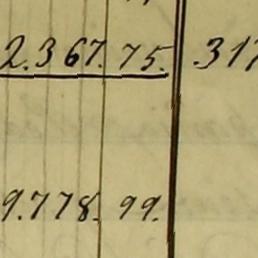 2.367.75. .317
9.778. 99.